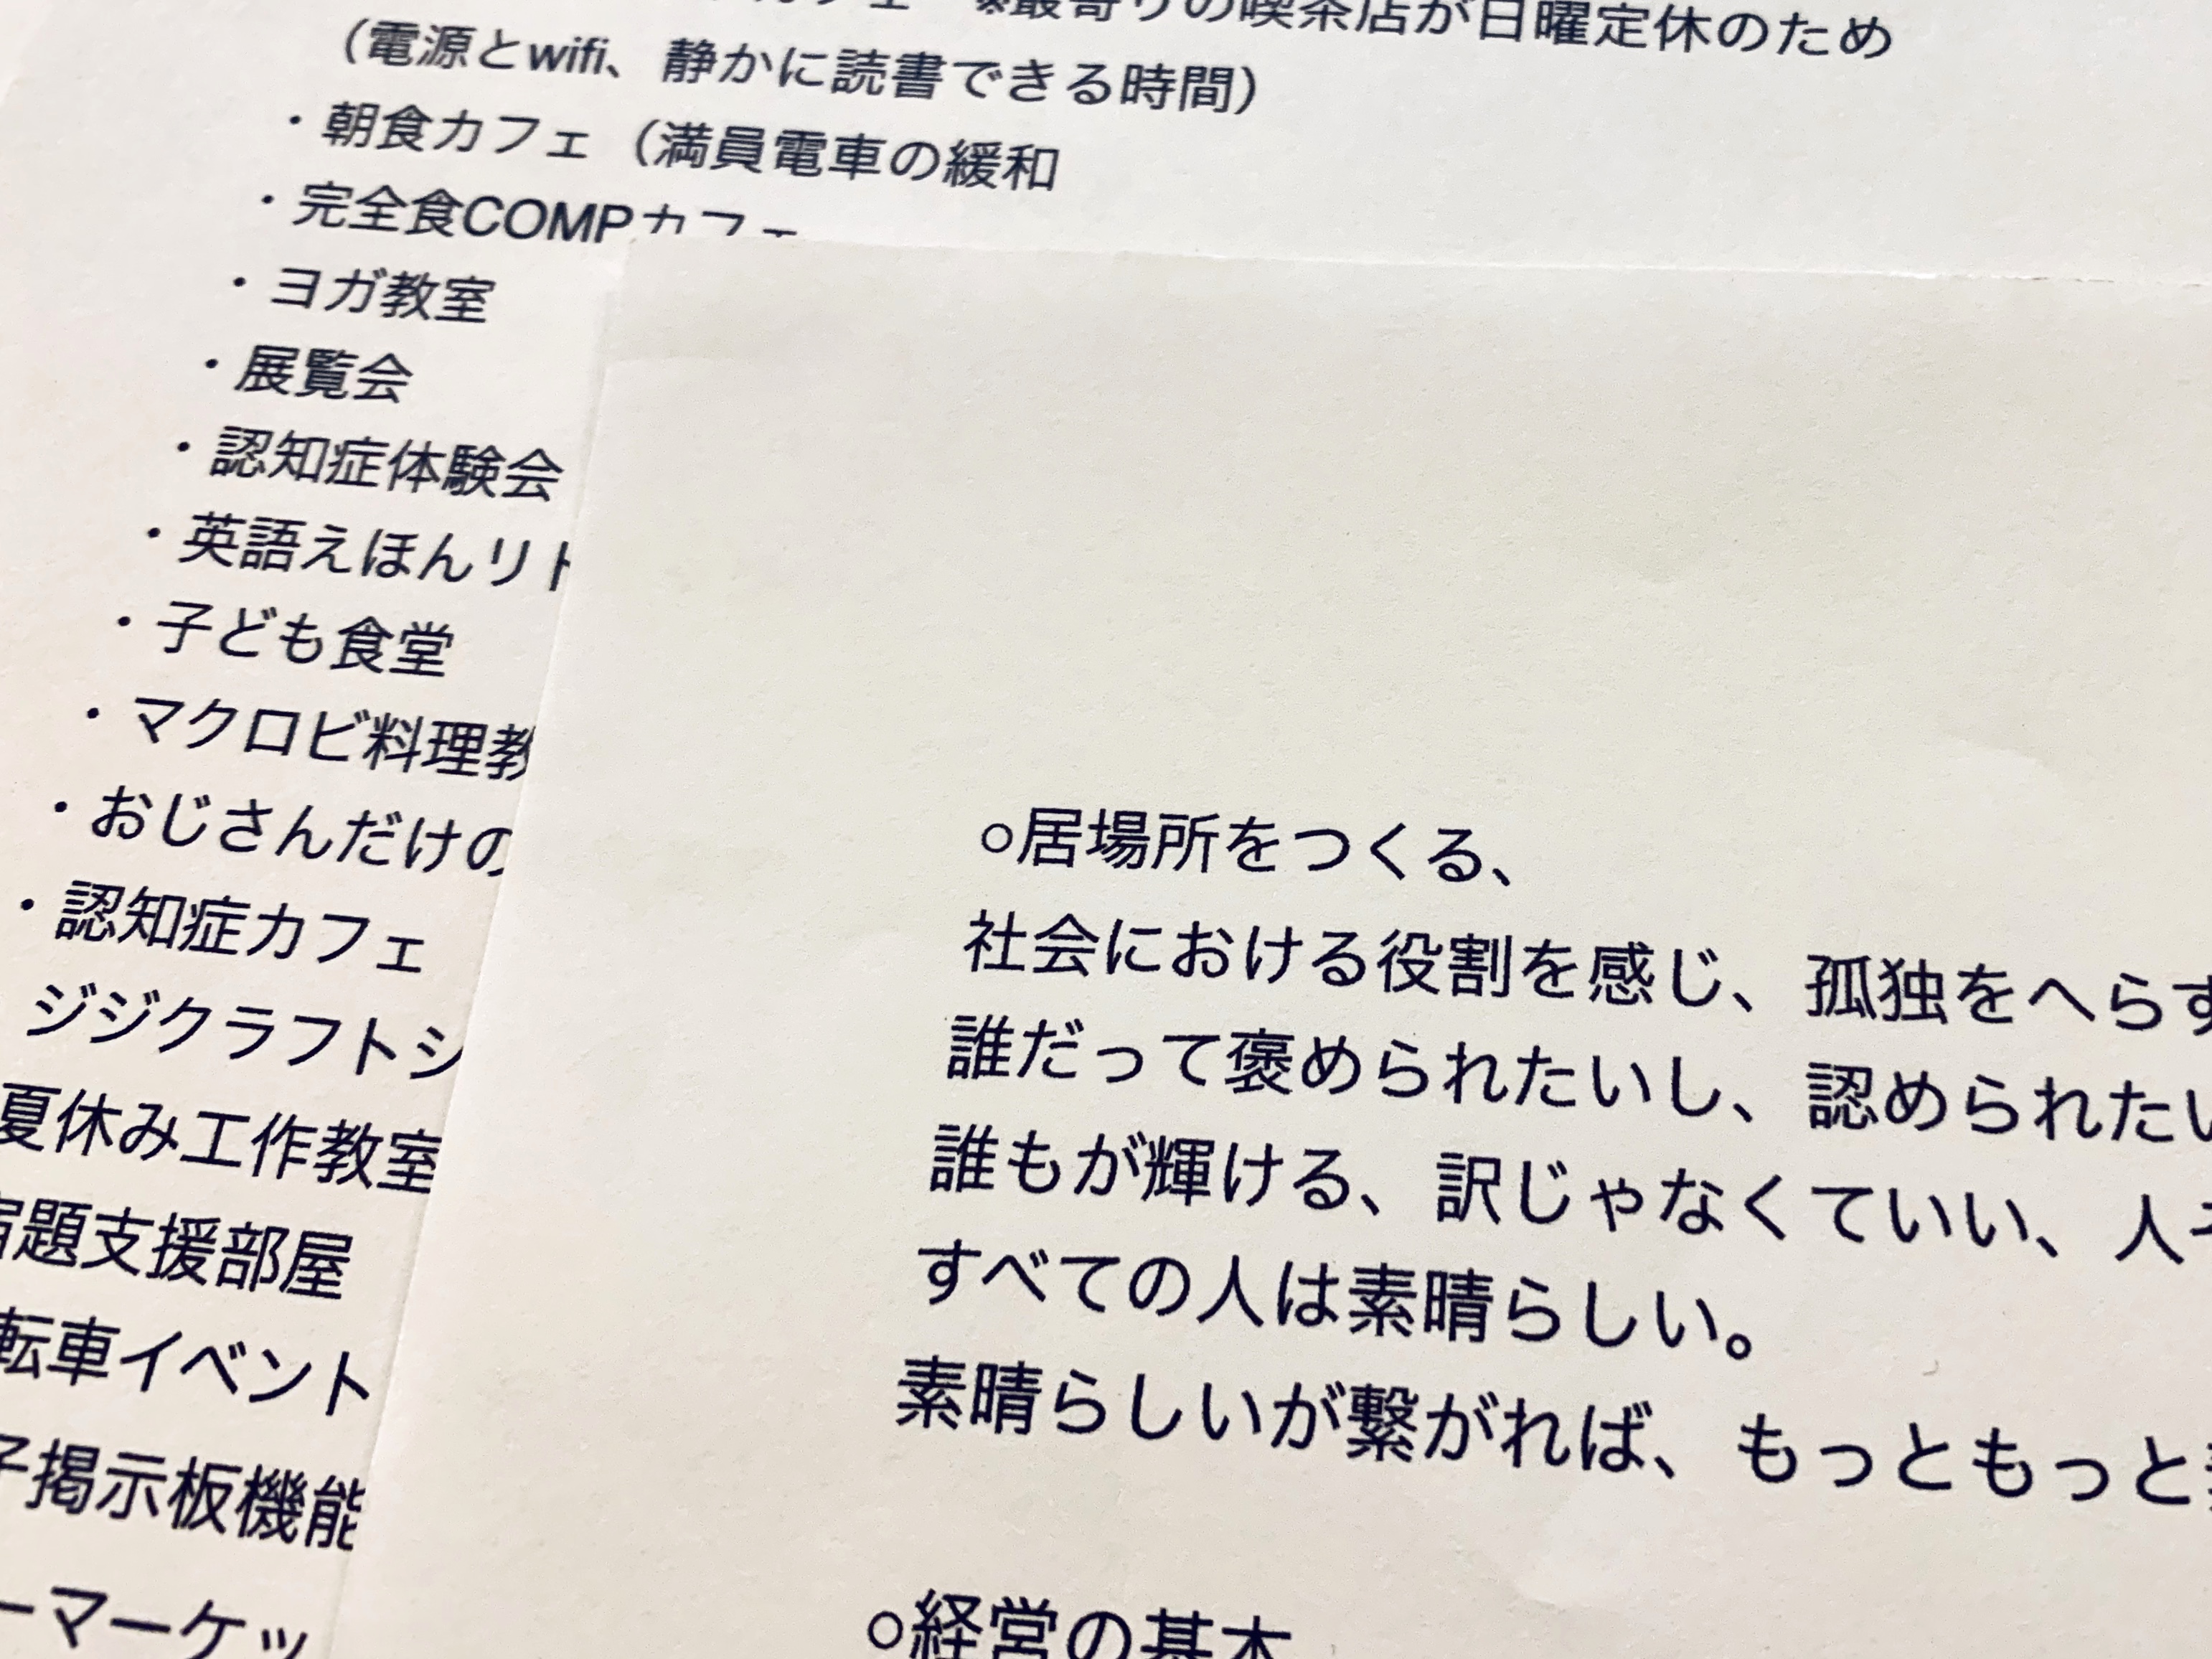 ※最寄りの喫茶店が日曜定休のため
（電源とwifi、静かに読書できる時間）
・朝食カフェ（満員電車の緩和
・完全食COMPカフェ
・ヨガ教室
・展覧会
・認知症体験会
・英語えほんリト
・子ども食堂
・マクロビ料理教
・おじさんだけの
・認知症カフェ
ジジクラフトシ
夏休み工作教室
宿題支援部屋
転車イベント
子掲示板機能
ーマーケッ
○居場所をつくる、
社会における役割を感じ、孤独をへらす
誰だって褒められたいし、認められたい
誰もが輝ける、訳じゃなくていい、人そ
すべての人は素晴らしい。
素晴らしいが繋がれば、もっともっと
○経営の基本